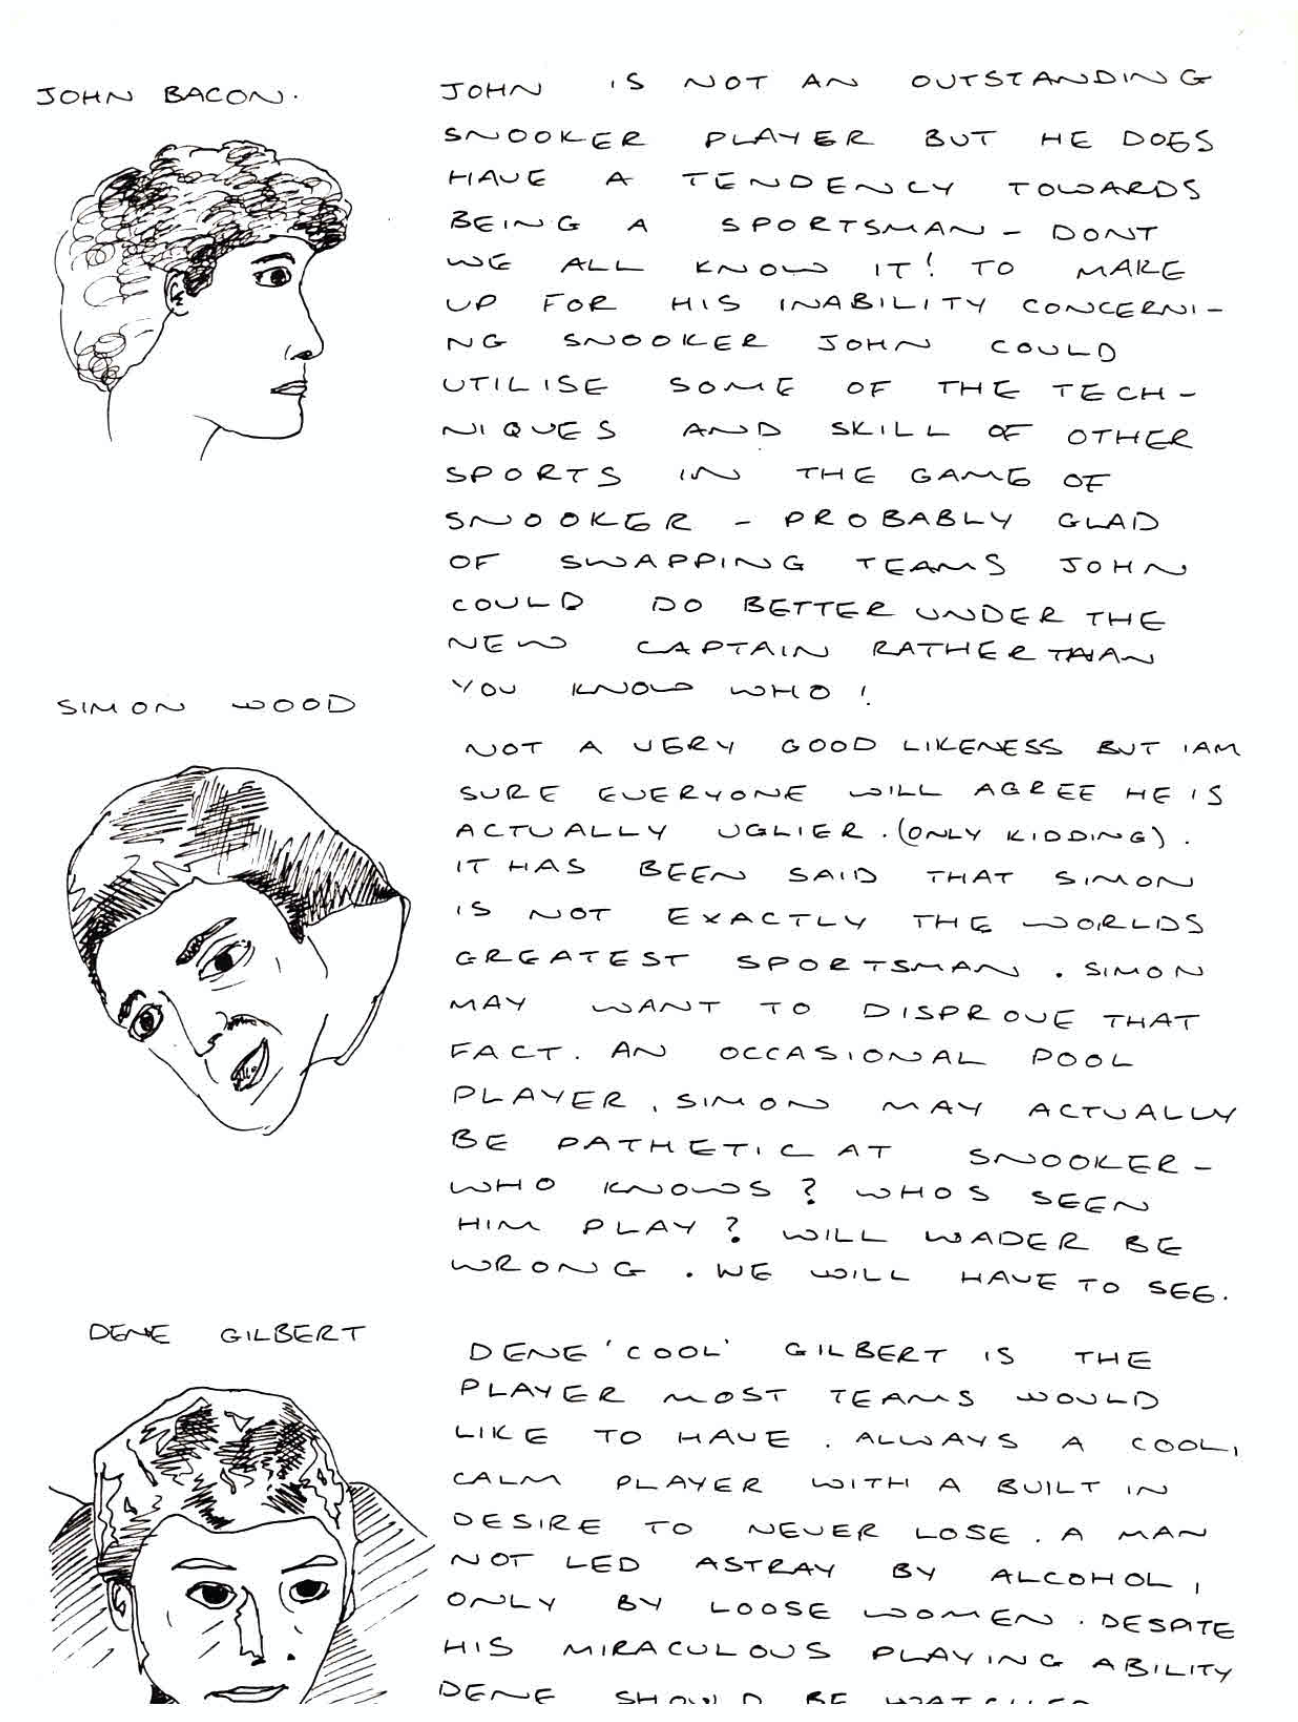 JOHN BACON.
JOHN IS NOT AN OUTSTANDING
SNOOKER PLAYER BUT HE DOES
HAVE A TENDENCY TOWARDS
BEING A SPORTSMAN - DONT
WE ALL KNOW IT! TO MAKE
UP FOR HIS INABILITY CONCERNI-
NG SNOOKER JOHN COULD
UTILISE SOME OF THE TECH-
NIQUES AND SKILL OF OTHER
SPORTS IN THE GAME OF
SNOOKER - PROBABLY GLAD
OF SWAPPING TEAMS JOHN
COULD DO BETTER UNDER THE
NEW CAPTAIN RATHER THAN
YOU KNOW WHO!
SIMON WOOD
NOT A VERY GOOD LIKENESS BUT I AM
SURE EVERYONE WILL AGREE HE IS
ACTUALLY UGLIER. (ONLY KIDDING).
IT HAS BEEN SAID THAT SIMON
IS NOT EXACTLY THE WORLDS
GREATEST SPORTSMAN. SIMON
MAY WANT TO DISPROVE THAT
FACT. AN OCCASIONAL POOL
PLAYER, SIMON MAY ACTUALLY
BE PATHETIC AT SNOOKER -
WHO KNOWS? WHOS SEEN
HIM PLAY? WILL WADER BE
WRONG. WE WILL HAVE TO SEE.
DENE GILBERT
DENE 'COOL' GILBERT IS THE
PLAYER MOST TEAMS WOULD
LIKE TO HAVE. ALWAYS A COOL,
CALM PLAYER WITH A BUILT IN
DESIRE TO NEVER LOSE. A MAN
NOT LED ASTRAY BY ALCOHOL,
ONLY BY LOOSE WOMEN. DESPITE
HIS MIRACULOUS PLAYING ABILITY
DENE SHOULD BE WATCHED